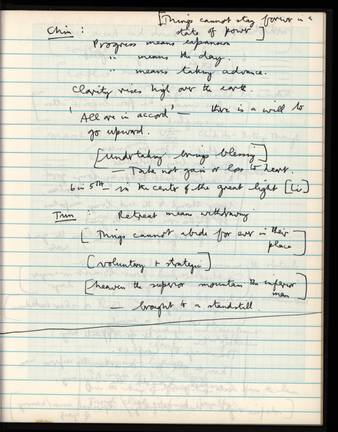 [Things cannot stay forever in a
Chin : state of power]
Progress means expansion
" means the day.
" means taking advance.
Clarity rises high over the earth.
'All are in accord' — there is a will to
go upward.
[Undertaking brings blessing]
— Take not gain or loss to heart.
6 in 5th — in the center of the great light [Li]
Tun : Retreat means withdrawing
[Things cannot abide for ever in their
place]
[voluntary + strategic]
[heaven the superior mountain the inferior
man]
— brought to a standstill.